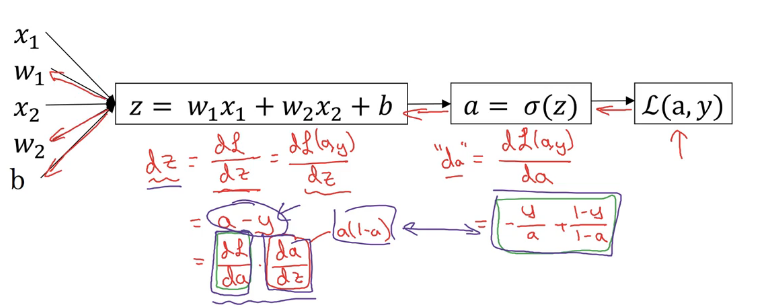 x₁
w₁
x₂
w₂
b
z = w₁x₁ + w₂x₂ + b
a = σ(z)
ℒ(a, y)
dz = dℒ/dz = dℒ(a,y)/dz
= a - y
= dℒ/da · da/dz
a(1-a)
"da" = dℒ(a,y)/da
= -y/a + 1-y/1-a